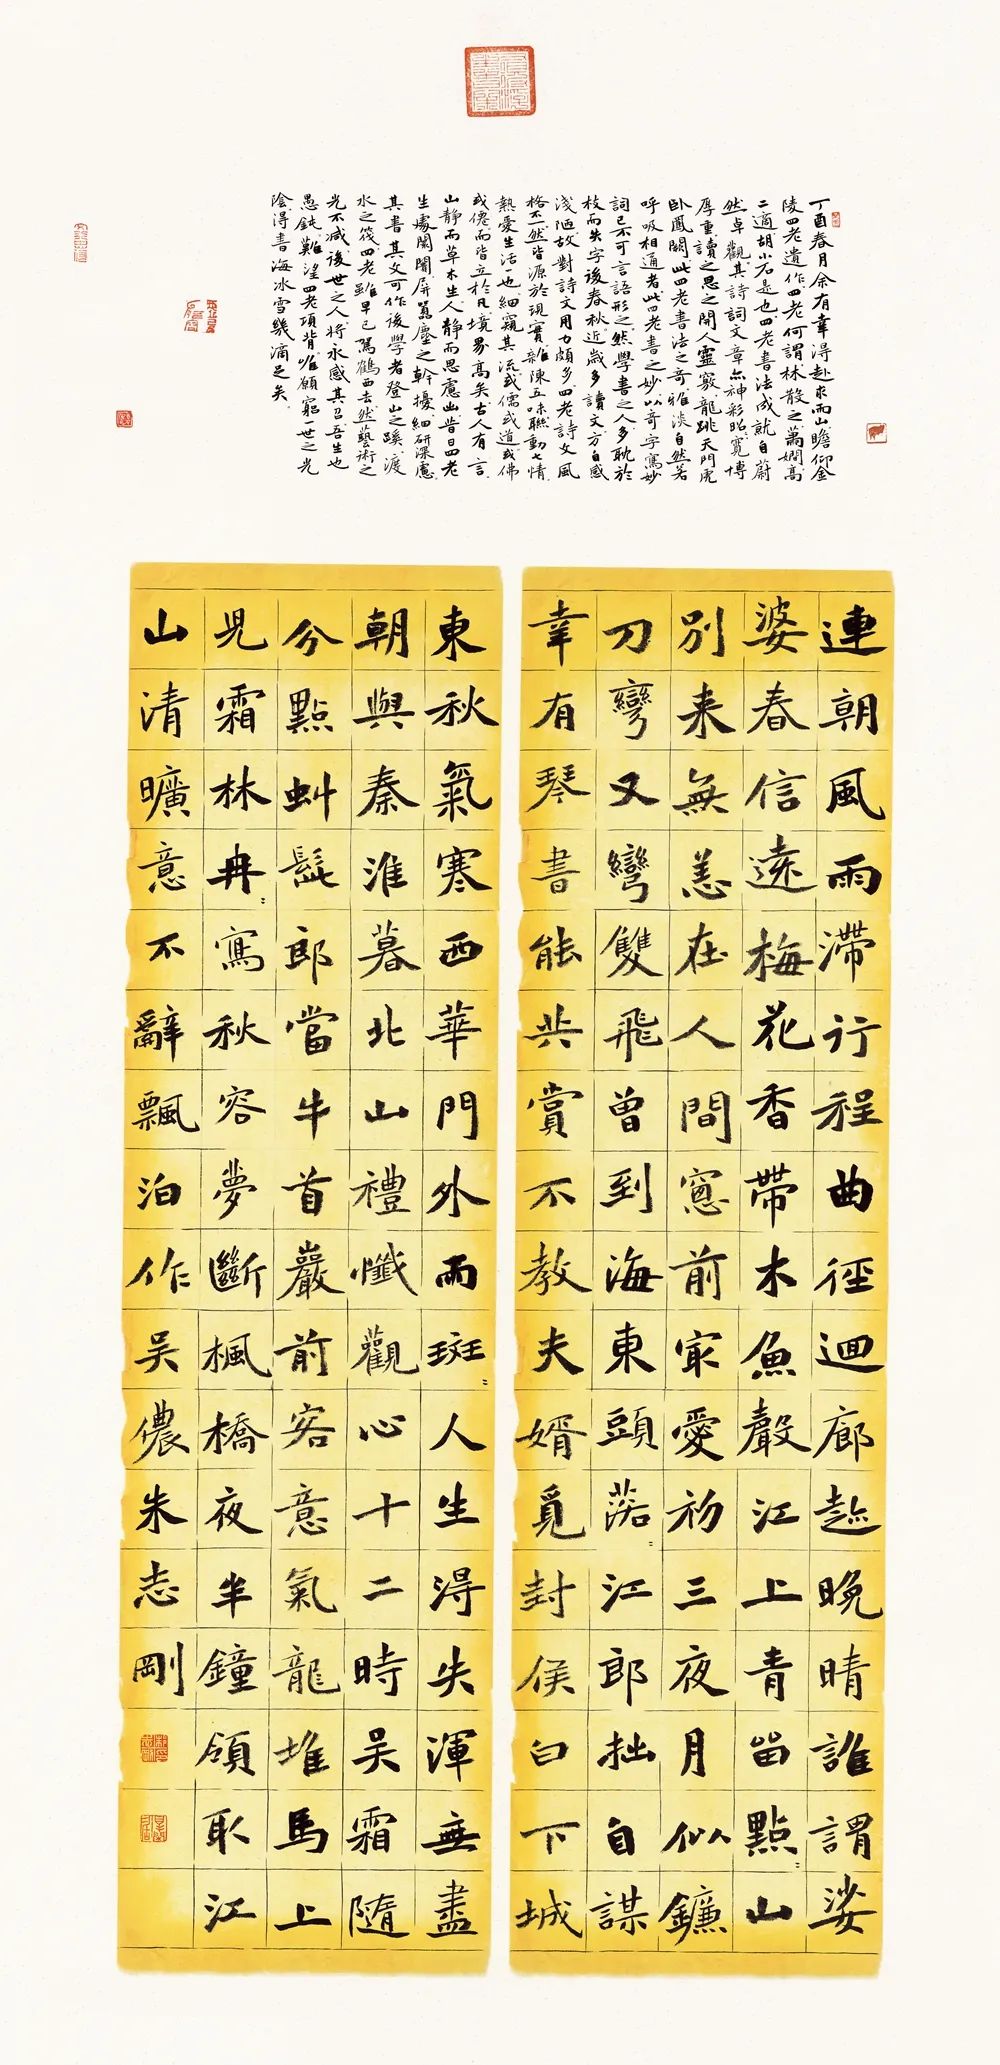 丁酉春月余有幸得赴求雨山瞻仰金
陵四老遺作四老何謂林散之蕭嫻高
二適胡小石是也四老書法成就自蔚
然卓觀其詩詞文章亦神彩昭寬博
厚重讀之思之開人靈竅龍跳天門虎
卧鳳闕此四老書法之奇雅淡自然若
呼吸相通者此四老書之妙以奇字寫妙
詞已不可言語形之然學書之人多耽於
枝而失字後春秋近歲多讀文方自感
淺陋故對詩文用力頗多四老詩文風
格不一然皆源於現實雜陳五味聯動七情
熱愛生活一也細窺其流或儒或道或佛
或僊而皆立於凡境界高矣古人有言
山靜而草木生人靜而思慮出昔日四老
生處闌闠屏囂塵之幹擾細研深慮
其書其文可作後學者登山之蹊渡
水之筏四老雖早已駕鶴西去然藝術之
光不减後世之人將永感其召吾生也
愚鈍難望四老項背唯願窮一世之光
陰得書海冰雪幾滴足矣
連朝風雨滯行程曲徑迴廊趂晚晴誰謂娑
婆春信遠梅花香帶木魚聲江上青留點〻山
別来無恙在人間窻前家愛初三夜月似鐮
刀彎又彎雙飛曾到海東頭落〻江郎拙自謀
幸有琴書能共賞不教夫婿覓封侯白下城
東秋氣寒西華門外雨斑〻人生淂失渾無盡
朝與秦淮暮北山禮懺觀心十二時吴霜隨
分點虯髭郎當牛首巖前客意氣龍堆馬上
児霜林冉〻寫秋容夢斷楓橋夜半鐘領取江
山清曠意不辭飄泊作吴儂朱志剛